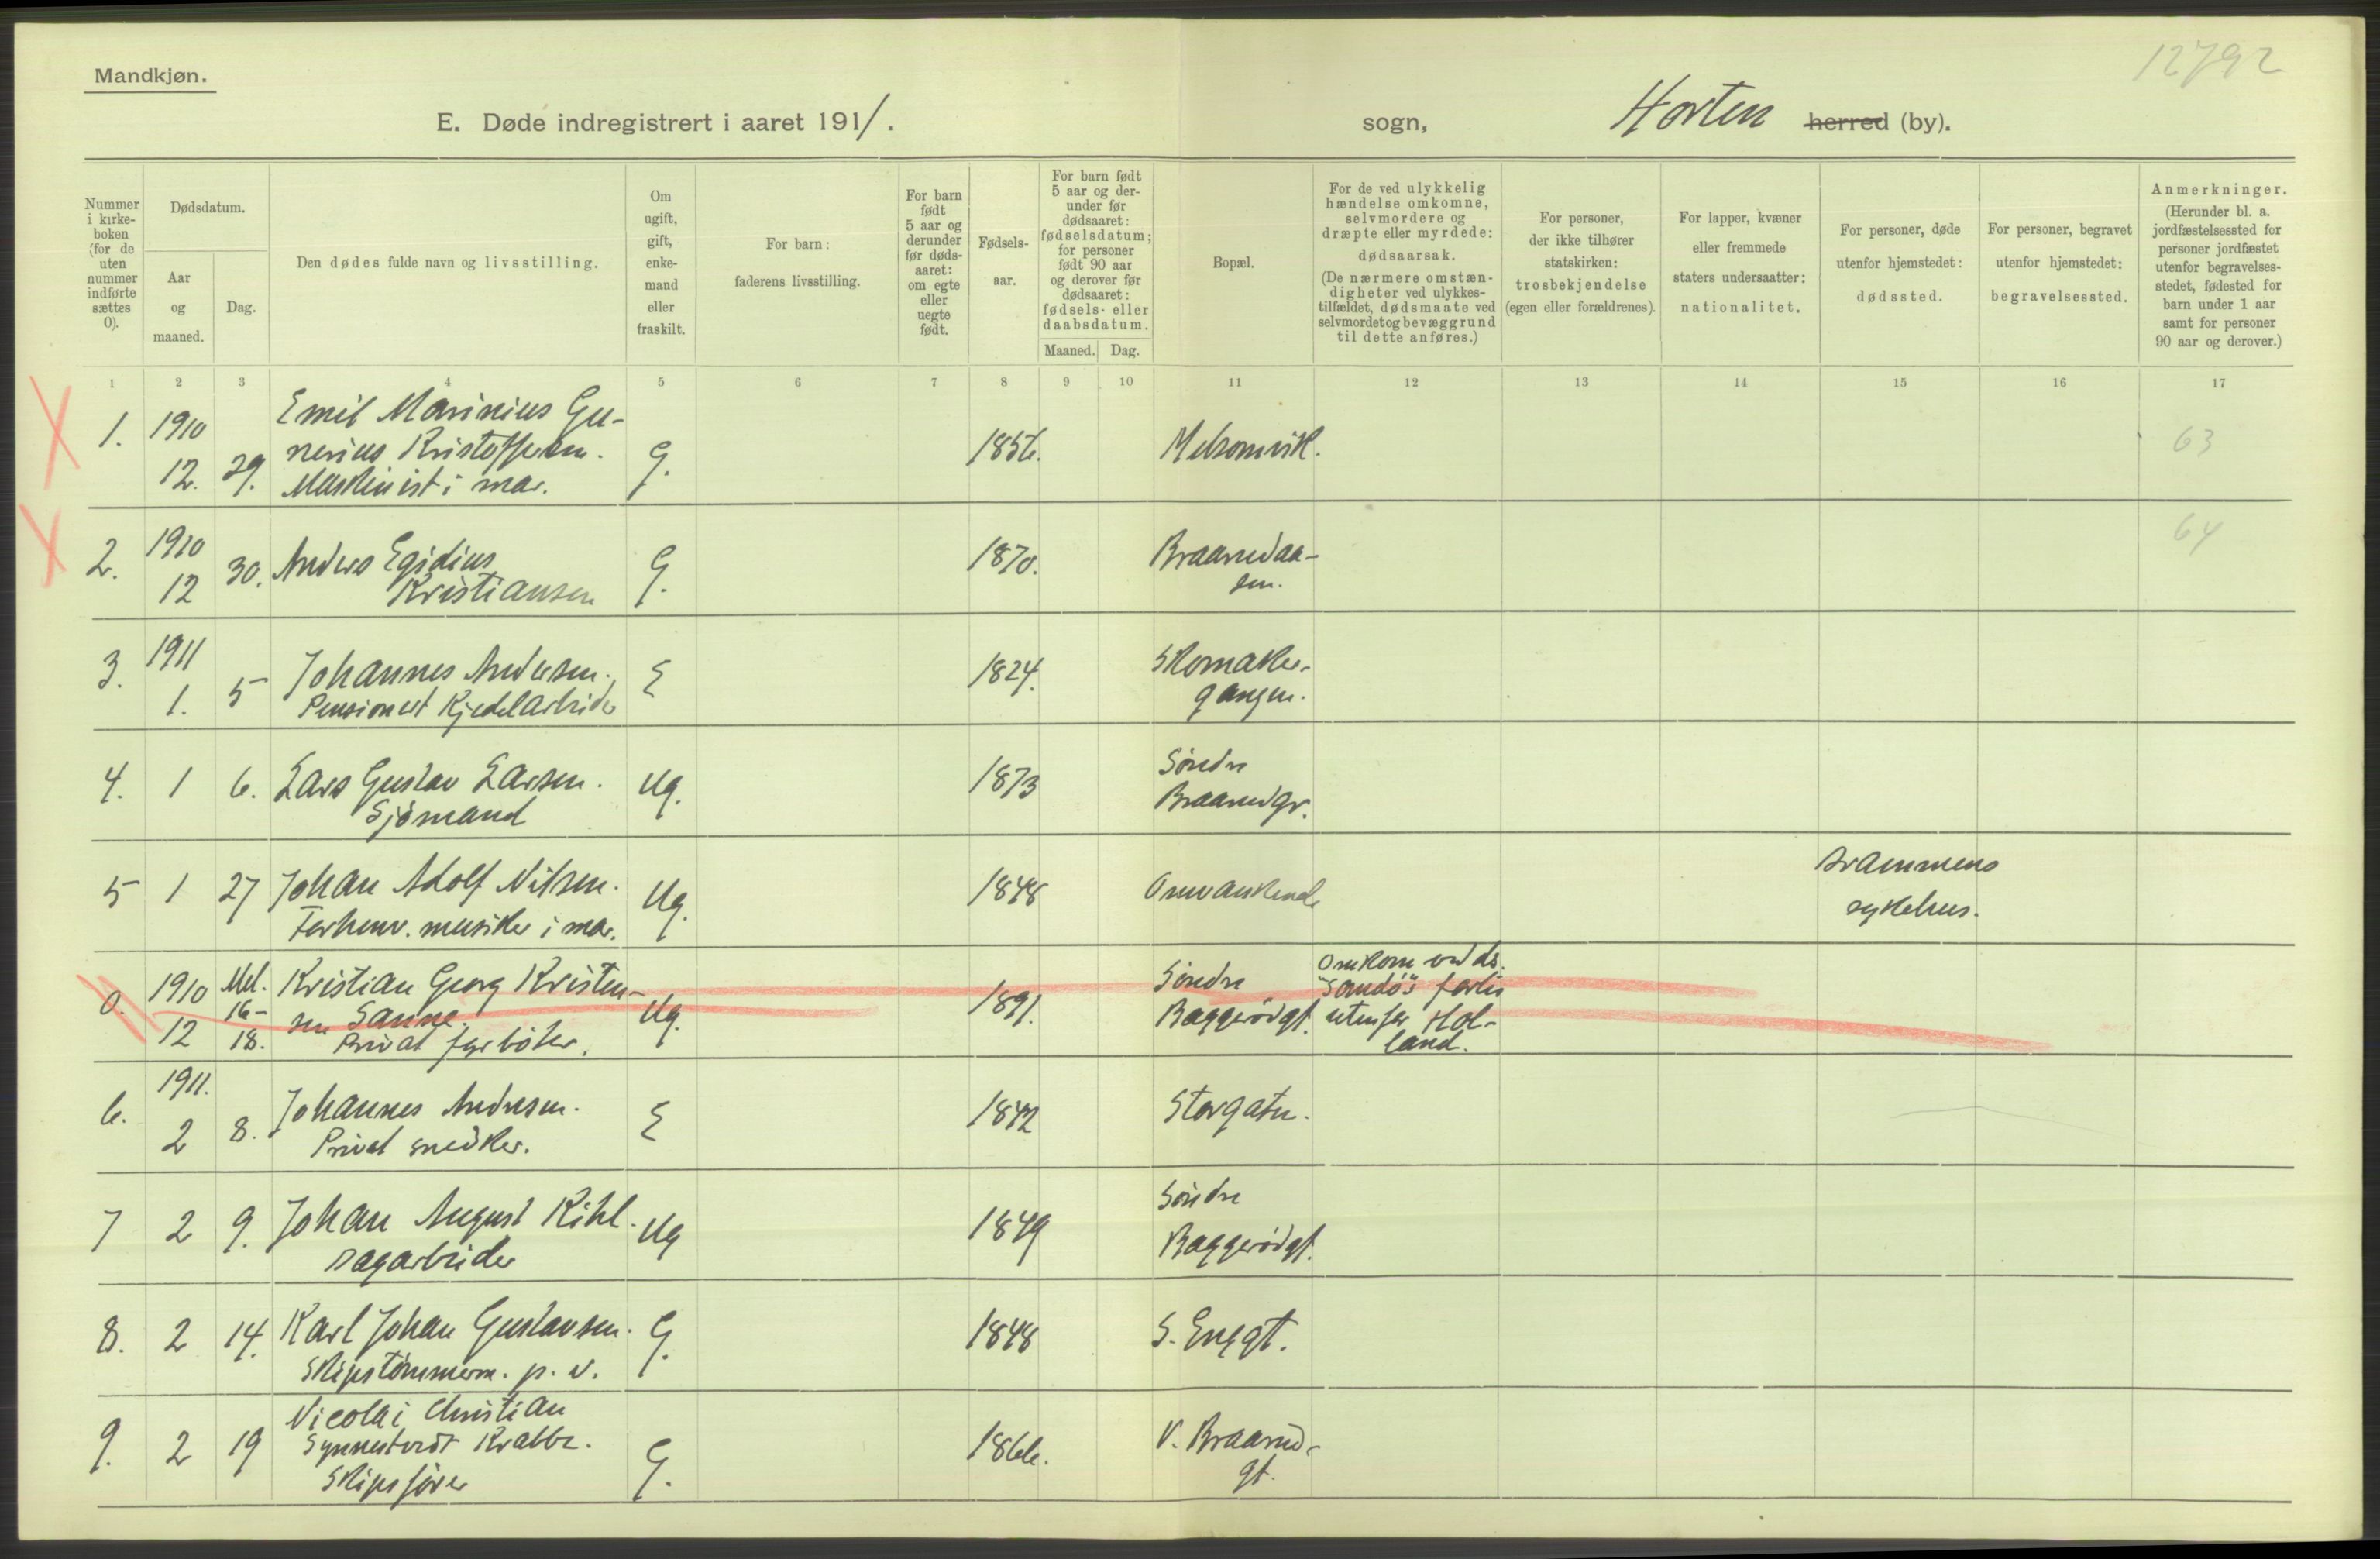 12792
Mandkjøn.
E. Døde indregistrert i aaret 1911. sogn, Horten herred (by).
Nummer i kirke-boken (for de uten nummer indførte sættes 0).
Dødsdatum.
Aar og maaned.
Dag.
Den dødes fulde navn og livsstilling.
Om ugift, gift, enke-mand eller fraskilt.
For barn: faderens livsstilling.
For barn født 5 aar og derunder før døds-aaret: om egte eller uegte født.
Fødsels-aar.
For barn født 5 aar og der-under før dødsaaret: fødselsdatum; for personer født 90 aar og derover før dødsaaret: fødsels- eller daabsdatum.
Maaned. Dag.
Bopæl.
For de ved ulykkelig hændelse omkomne, selvmordere og dræpte eller myrdede: dødsaarsak. (De nærmere omstæn-digheter ved ulykkes-tilfældet, dødsmaate ved selvmordet og bevæggrund til dette anføres.)
For personer, der ikke tilhører statskirken: trosbekjendelse (egen eller forældrenes).
For lapper, kvæner eller fremmede staters undersaatter: nationalitet.
For personer, døde utenfor hjemstedet: dødssted.
For personer, begravet utenfor hjemstedet: begravelsessted.
Anmerkninger. (Herunder bl. a. jordfæstelsessted for personer jordfæstet utenfor begravelses-stedet, fødested for barn under 1 aar samt for personer 90 aar og derover.)
1 2 3 4 5 6 7 8 9 10 11 12 13 14 15 16 17
1. 1910 12. 29. Emil Marinius Gu-
nerius Kristoffersen. G. 1856. Melsomvik. 63
Maskinist i mar.
2. 1910 12 30. Anders Egidius
Kristiansen G. 1870. Braarudaa-
sen. 64
3. 1911 1. 5 Johannes Andersen. E 1824. Skomaker-
Pensionert Kjedelarbeider gangen.
4. 1 6. Lars Gustav Larsen. Ug. 1873 Søndre
Sjømand Braarudgt.
5 1 27 Johan Adolf Nilsen. Ug. 1848 Omvankende Drammens
Forhenv. musiker i mar. sykehus.
0. 1910 12 Mel. 16-18. Kristian Georg Kristen-
sen Sanne. Ug. 1891. Søndre Baggerødgt. Omkom ved ds.
"Sandø"s forlis
Privat fyrbøter. utenfor Hol-
land.
6. 1911. 2 8. Johannes Andresen. E 1842 Storgaten.
Privat snedker.
7 2 9. Johan August Kihl. Ug 1849 Søndre
sagarbeider Baggerødgt.
8. 2 14. Karl Johan Gustavsen. G. 1848 S. Enggt.
Skipstømmerm. p. v.
9. 2 19 Nicolai Christian
Synnestvedt Krabbe. G. 1866. V. Braarud-
Skipsfører gt.